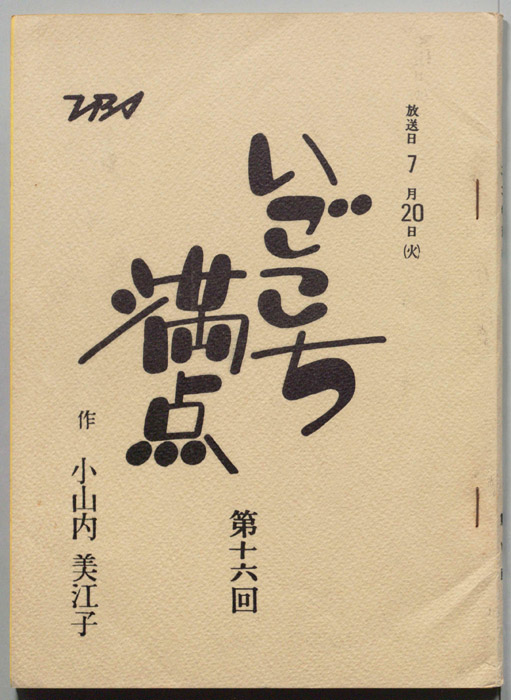 放送日 7月20日(火)
TBS
いごこち
満点
第十六回
作 小山内 美江子